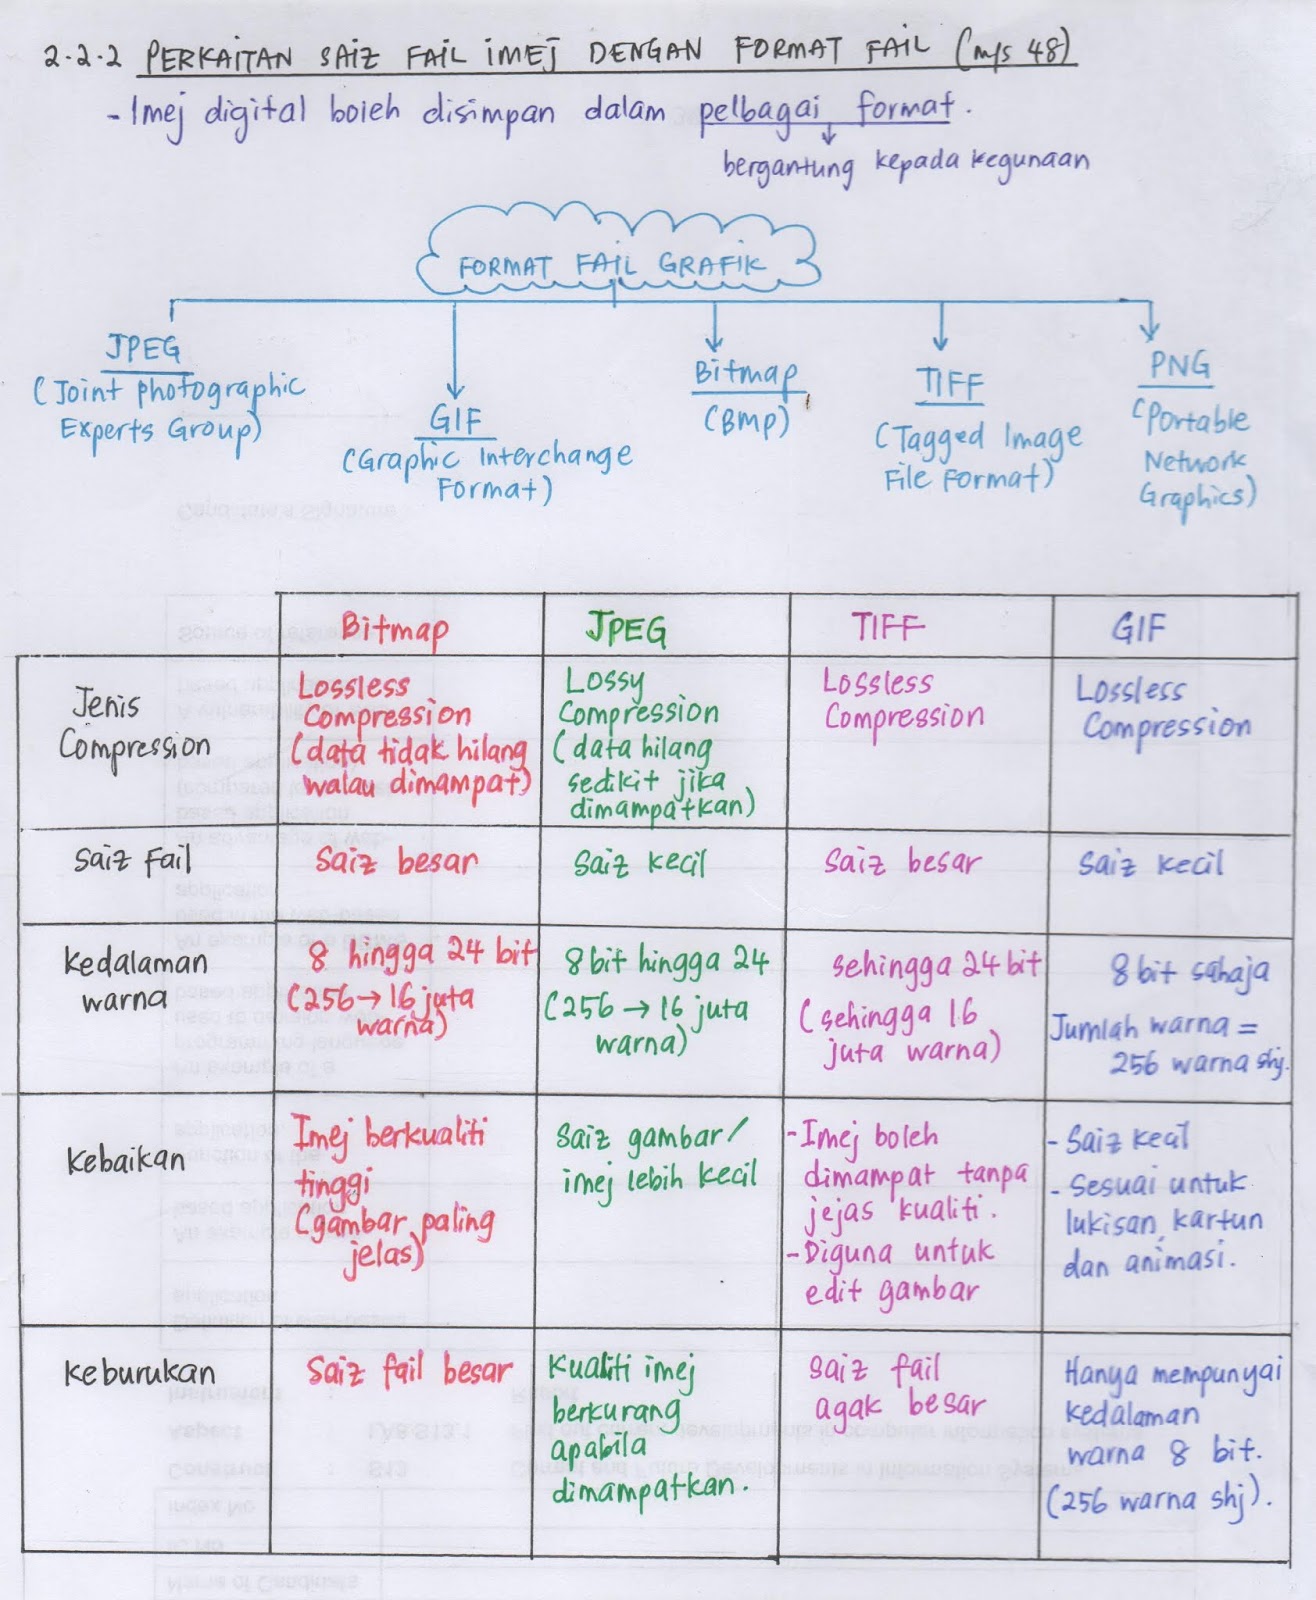 2.2.2 PERKAITAN SAIZ FAIL IMEJ DENGAN FORMAT FAIL (m/s 48)
- Imej digital boleh disimpan dalam pelbagai format.
bergantung kepada kegunaan
FORMAT FAIL GRAFIK
JPEG
(Joint photographic
Experts Group)
GIF
(Graphic Interchange
Format)
Bitmap
(BMP)
TIFF
(Tagged Image
File Format)
PNG
(Portable
Network
Graphics)
Bitmap
JPEG
TIFF
GIF
Jenis
Compression
Lossless
Compression
(data tidak hilang
walau dimampat)
Lossy
Compression
(data hilang
sedikit jika
dimampatkan)
Lossless
Compression
Lossless
Compression
Saiz Fail
Saiz besar
Saiz kecil
Saiz besar
Saiz kecil
Kedalaman
warna
8 hingga 24 bit
(256→16 juta
warna)
8bit hingga 24
(256 → 16 juta
warna)
sehingga 24 bit
(sehingga 16
juta warna)
8 bit sahaja
Jumlah warna =
256 warna shj.
Kebaikan
Imej berkualiti
tinggi
(gambar paling
jelas)
Saiz gambar/
imej lebih kecil
-Imej boleh
dimampat tanpa
jejas kualiti.
-Diguna untuk
edit gambar
- Saiz kecil
- Sesuai untuk
lukisan, kartun
dan animasi.
Keburukan
Saiz fail besar
Kualiti imej
berkurang
apabila
dimampatkan.
Saiz fail
agak besar
Hanya mempunyai
kedalaman
warna 8 bit.
(256 warna shj).